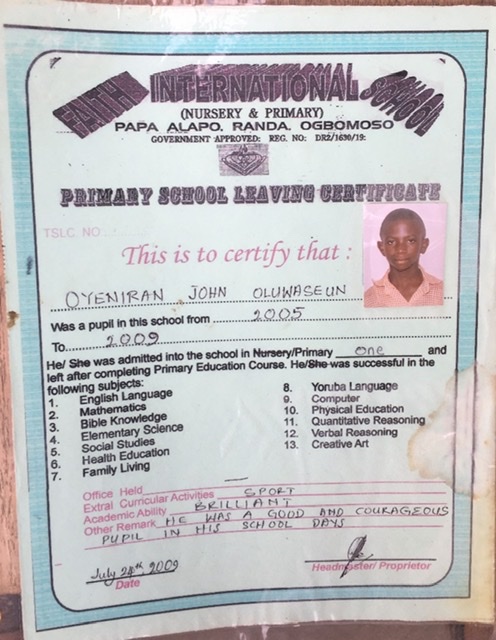 FAITH INTERNATIONAL SCHOOL
(NURSERY & PRIMARY)
PAPA ALAPO, RANDA, OGBOMOSO
GOVERNMENT APPROVED: REG. NO: DR2/1630/19:
PRIMARY SCHOOL LEAVING CERTIFICATE
TSLC NO
This is to certify that :
OYENIRAN JOHN OLUWASEUN
Was a pupil in this school from 2005
To 2009
He/ She was admitted into the school in Nursery/Primary one and
left after completing Primary Education Course. He/She was successful in the
following subjects:
1. English Language
2. Mathematics
3. Bible Knowledge
4. Elementary Science
5. Social Studies
6. Health Education
7. Family Living
8. Yoruba Language
9. Computer
10. Physical Education
11. Quantitative Reasoning
12. Verbal Reasoning
13. Creative Art
Office Held —
Extral Curricular Activities SPORT
Academic Ability BRILLIANT
Other Remark HE WAS A GOOD AND COURAGEOUS
PUPIL IN HIS SCHOOL DAYS
July 24th, 2009
Date
Headmaster/ Proprietor